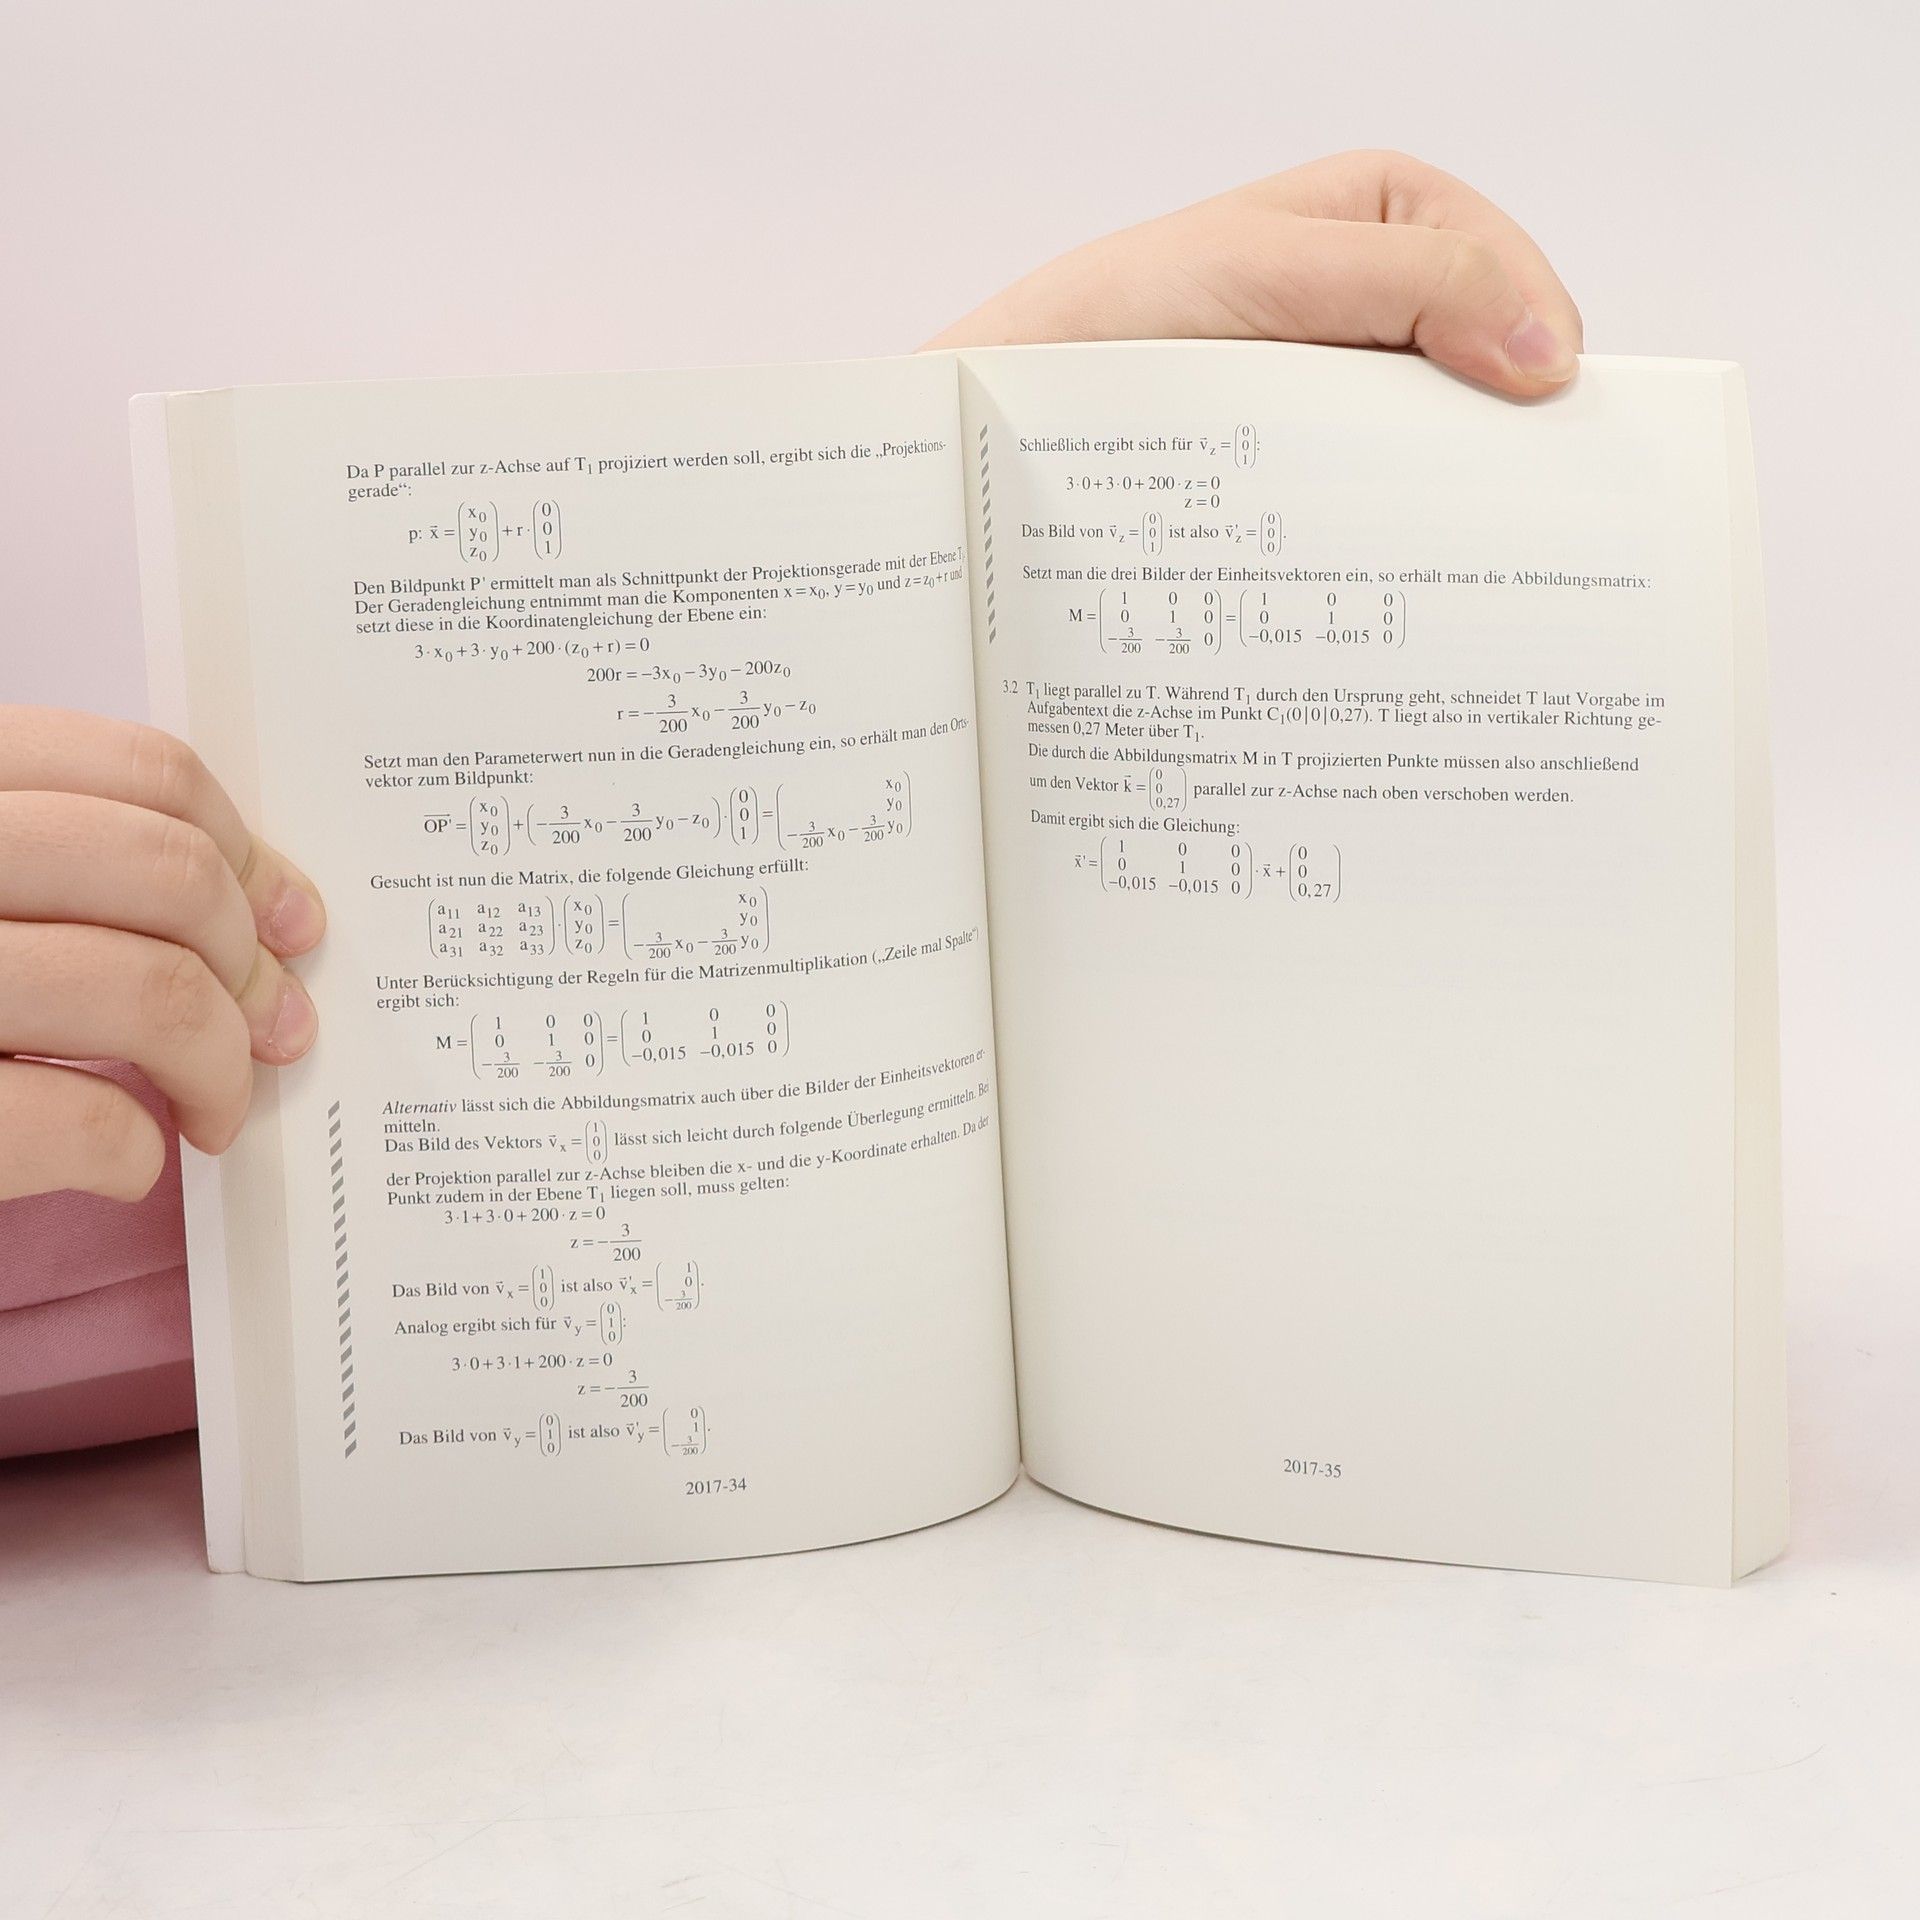 Da P parallel zur z-Achse auf T₁ projiziert werden soll, ergibt sich die „Projektions-
gerade“:
p: x⃗ = (x₀ y₀ z₀) + r · (0 0 1)
Den Bildpunkt P' ermittelt man als Schnittpunkt der Projektionsgerade mit der Ebene T₁.
Der Geradengleichung entnimmt man die Komponenten x = x₀, y = y₀ und z = z₀ + r und
setzt diese in die Koordinatengleichung der Ebene ein:
3 · x₀ + 3 · y₀ + 200 · (z₀ + r) = 0
200r = −3x₀ − 3y₀ − 200z₀
r = −3/200 x₀ − 3/200 y₀ − z₀
Setzt man den Parameterwert nun in die Geradengleichung ein, so erhält man den Orts-
vektor zum Bildpunkt:
OP' = (x₀ y₀ z₀) + (−3/200 x₀ − 3/200 y₀ − z₀) · (0 0 1) = (x₀ y₀ −3/200 x₀ − 3/200 y₀)
Gesucht ist nun die Matrix, die folgende Gleichung erfüllt:
(a₁₁ a₁₂ a₁₃
a₂₁ a₂₂ a₂₃
a₃₁ a₃₂ a₃₃) · (x₀ y₀ z₀) = (x₀ y₀ −3/200 x₀ − 3/200 y₀)
Unter Berücksichtigung der Regeln für die Matrizenmultiplikation („Zeile mal Spalte“)
ergibt sich:
M = (1 0 0
0 1 0
−3/200 −3/200 0) = (1 0 0
0 1 0
−0,015 −0,015 0)
Alternativ lässt sich die Abbildungsmatrix auch über die Bilder der Einheitsvektoren er-
mitteln.
Das Bild des Vektors v⃗ₓ = (1 0 0) lässt sich leicht durch folgende Überlegung ermitteln. Bei
der Projektion parallel zur z-Achse bleiben die x- und die y-Koordinate erhalten. Da der
Punkt zudem in der Ebene T₁ liegen soll, muss gelten:
3 · 1 + 3 · 0 + 200 · z = 0
z = −3/200
Das Bild von v⃗ₓ = (1 0 0) ist also v⃗'ₓ = (1 0 −3/200).
Analog ergibt sich für v⃗_y = (0 1 0):
3 · 0 + 3 · 1 + 200 · z = 0
z = −3/200
Das Bild von v⃗_y = (0 1 0) ist also v⃗'_y = (0 1 −3/200).
2017-34
Schließlich ergibt sich für v⃗_z = (0 0 1):
3 · 0 + 3 · 0 + 200 · z = 0
z = 0
Das Bild von v⃗_z = (0 0 1) ist also v⃗'_z = (0 0 0).
Setzt man die drei Bilder der Einheitsvektoren ein, so erhält man die Abbildungsmatrix:
M = (1 0 0
0 1 0
−3/200 −3/200 0) = (1 0 0
0 1 0
−0,015 −0,015 0)
3.2 T₁ liegt parallel zu T. Während T₁ durch den Ursprung geht, schneidet T laut Vorgabe im
Aufgabentext die z-Achse im Punkt C₁(0|0|0,27). T liegt also in vertikaler Richtung ge-
messen 0,27 Meter über T₁.
Die durch die Abbildungsmatrix M in T projizierten Punkte müssen also anschließend
um den Vektor k⃗ = (0 0 0,27) parallel zur z-Achse nach oben verschoben werden.
Damit ergibt sich die Gleichung:
x⃗' = (1 0 0
0 1 0
−0,015 −0,015 0) · x⃗ + (0 0 0,27)
2017-35